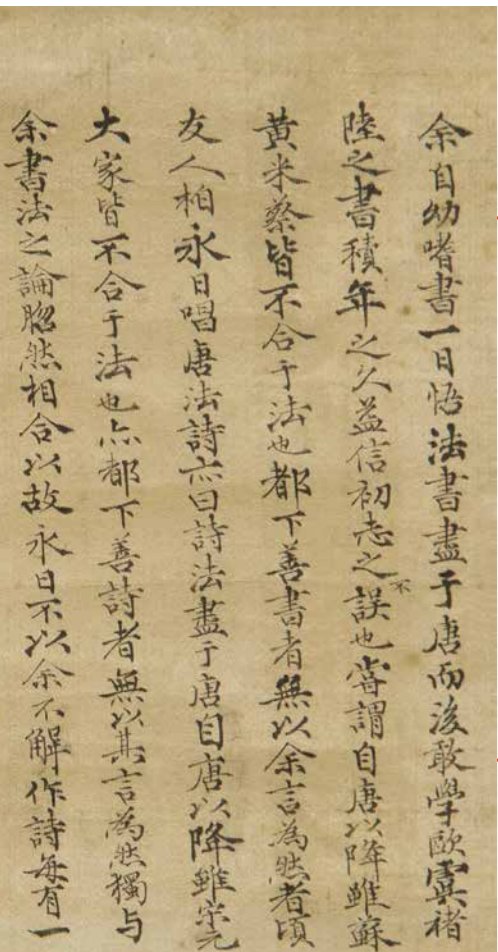 余自幼嗜書一日悟法書盡于唐而後敢學歐虞褚
陸之書積年之久益信初志之不誤也嘗謂自唐以降雖蘇
黄米蔡皆不合于法也都下善書者無以余言為然者頃
友人柏永日唱唐法詩亦曰詩法盡于唐自唐以降雖宋元
大家皆不合于法也亦都下善詩者無以其言為然獨与
余書法之論脗然相合以故永日不以余不解作詩每有一